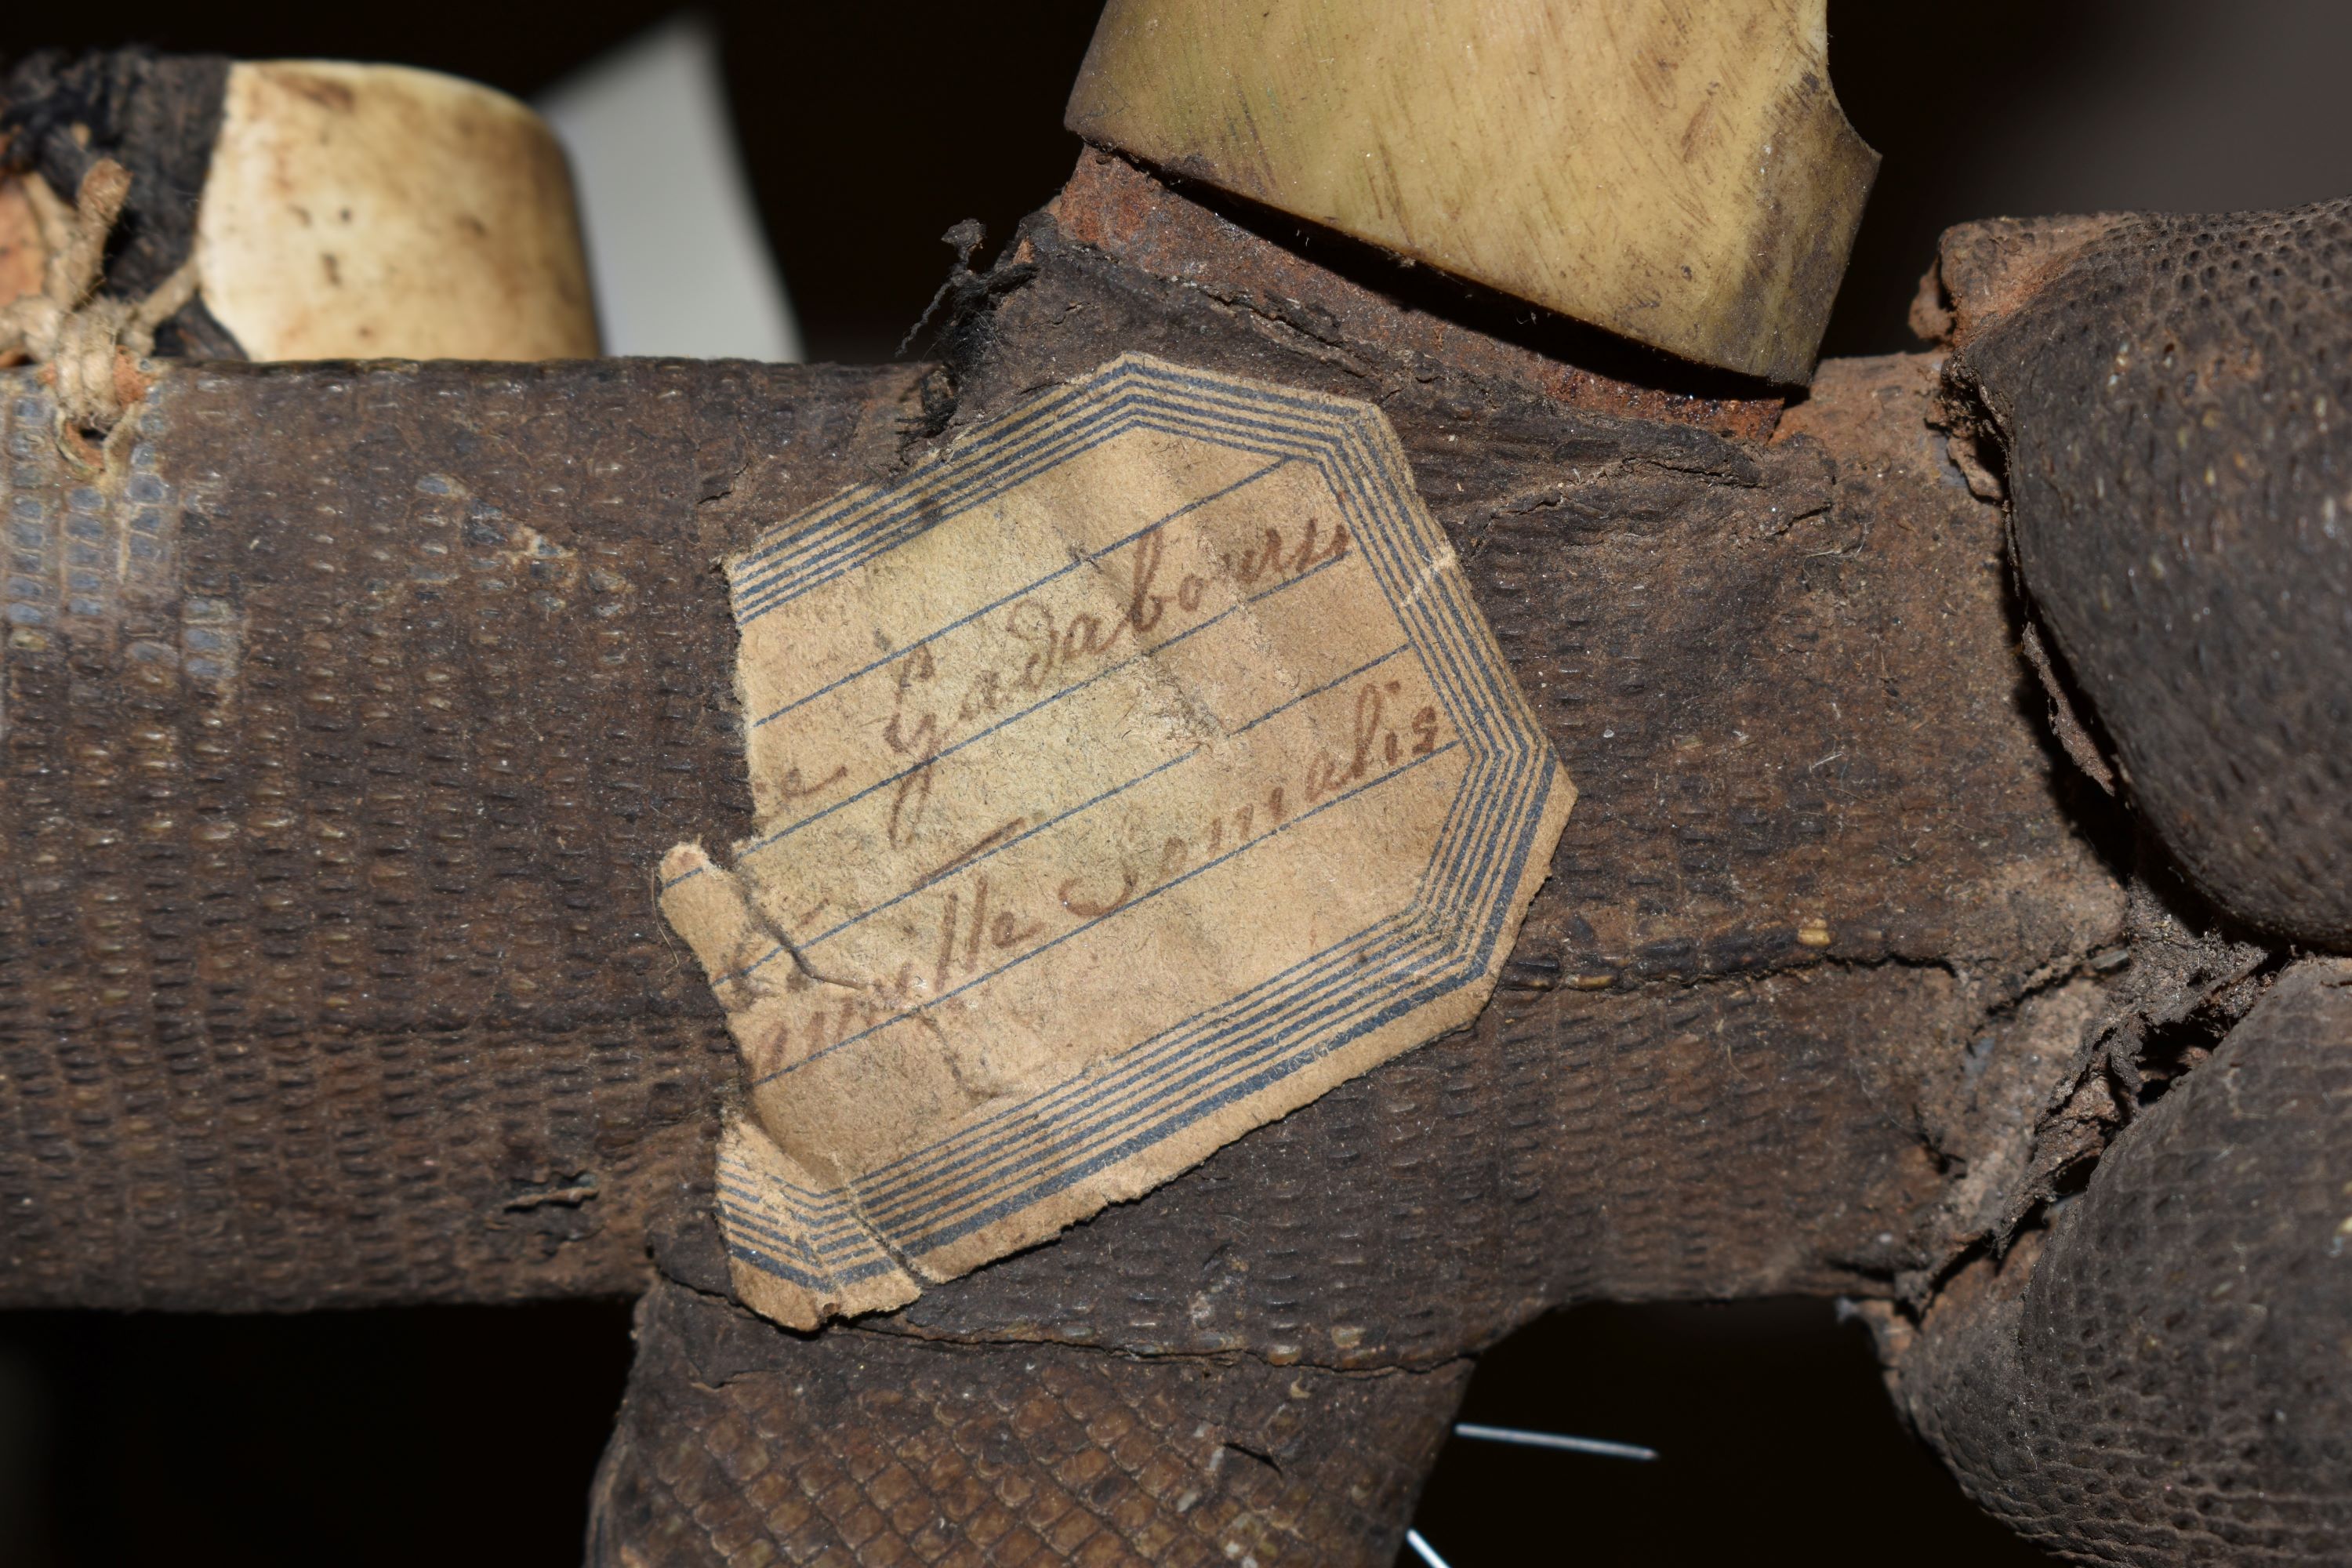 e Gadaboursi
lle Somalis